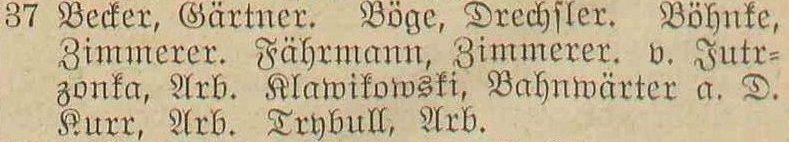 37 Becker, Gärtner. Böge, Drechsler. Böhnke,
Zimmerer. Fährmann, Zimmerer. v. Jutr-
zonka, Arb. Klawikowski, Bahnwärter a. D.
Kurr, Arb. Trybull, Arb.